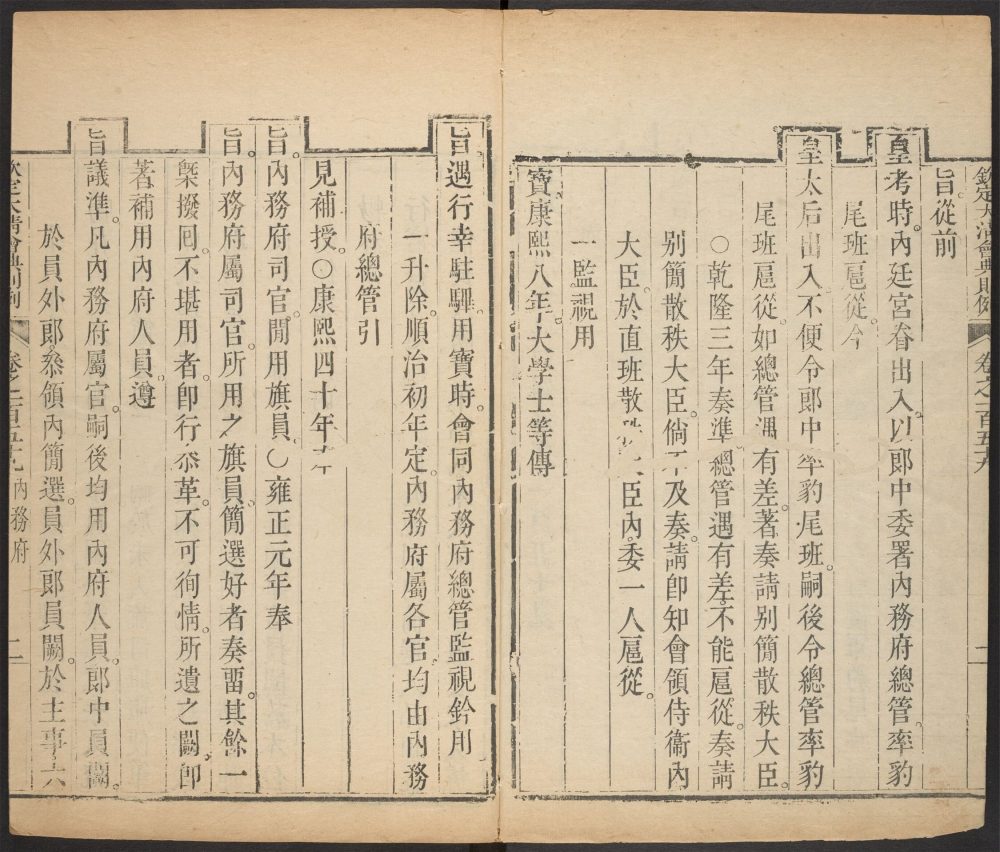 欽定大清會典則例 卷之一百五十九 二
旨從前
皇考時。內廷宮眷出入。以郎中委署內務府總管。率豹
尾班扈從。今
皇太后出入。不便令郎中率豹尾班。嗣後令總管率豹
尾班扈從。如總管遇有差。著奏請別簡散秩大臣。
○乾隆三年奏準。總管遇有差。不能扈從。奏請
別簡散秩大臣。倘不及奏請。即知會領侍衞內
大臣。於直班散秩大臣內。委一人扈從。
一監視用
寶。康熙八年。大學士等傳
旨。遇行幸駐驆。用寶時。會同內務府總管監視鈐用
一升除。順治初年定。內務府屬各官。均由內務
府總管引
見補授。○康熙四十年奉
旨。內務府司官。閒用旗員。○雍正元年奉
旨。內務府屬司官。所用之旗員。簡選好者奏畱。其餘一
槩撥回。不堪用者。即行叅革。不可徇情。所遺之闕。即
著補用內府人員。遵
旨議準。凡內務府屬官。嗣後均用內府人員。郎中員闕。
於員外郎。叅領內簡選。員外郎員闕。於主事。六
欽定大清會典則例 卷之一百五十九 內務府 二